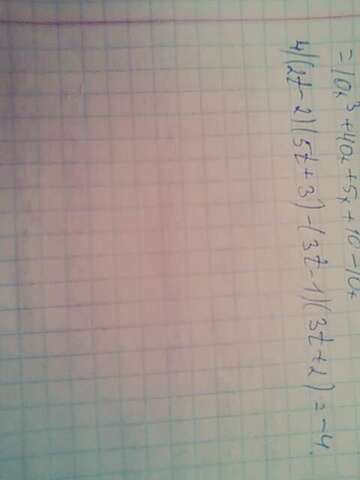 = 10x³ + 40x + 5x + 10 - 10x
4) (2t - 2)(5t + 3) - (3t - 1)(3t + 2) = -4.